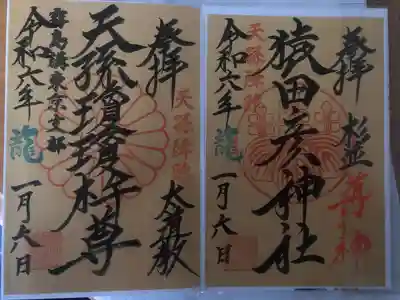 奉拝
杉並
天孫降臨
猿田彦神社
令和六年
龍
一月六日
奉拝
天孫降臨
天孫瓊瓊杵尊
霧島講東京支部
令和六年
龍
一月六日